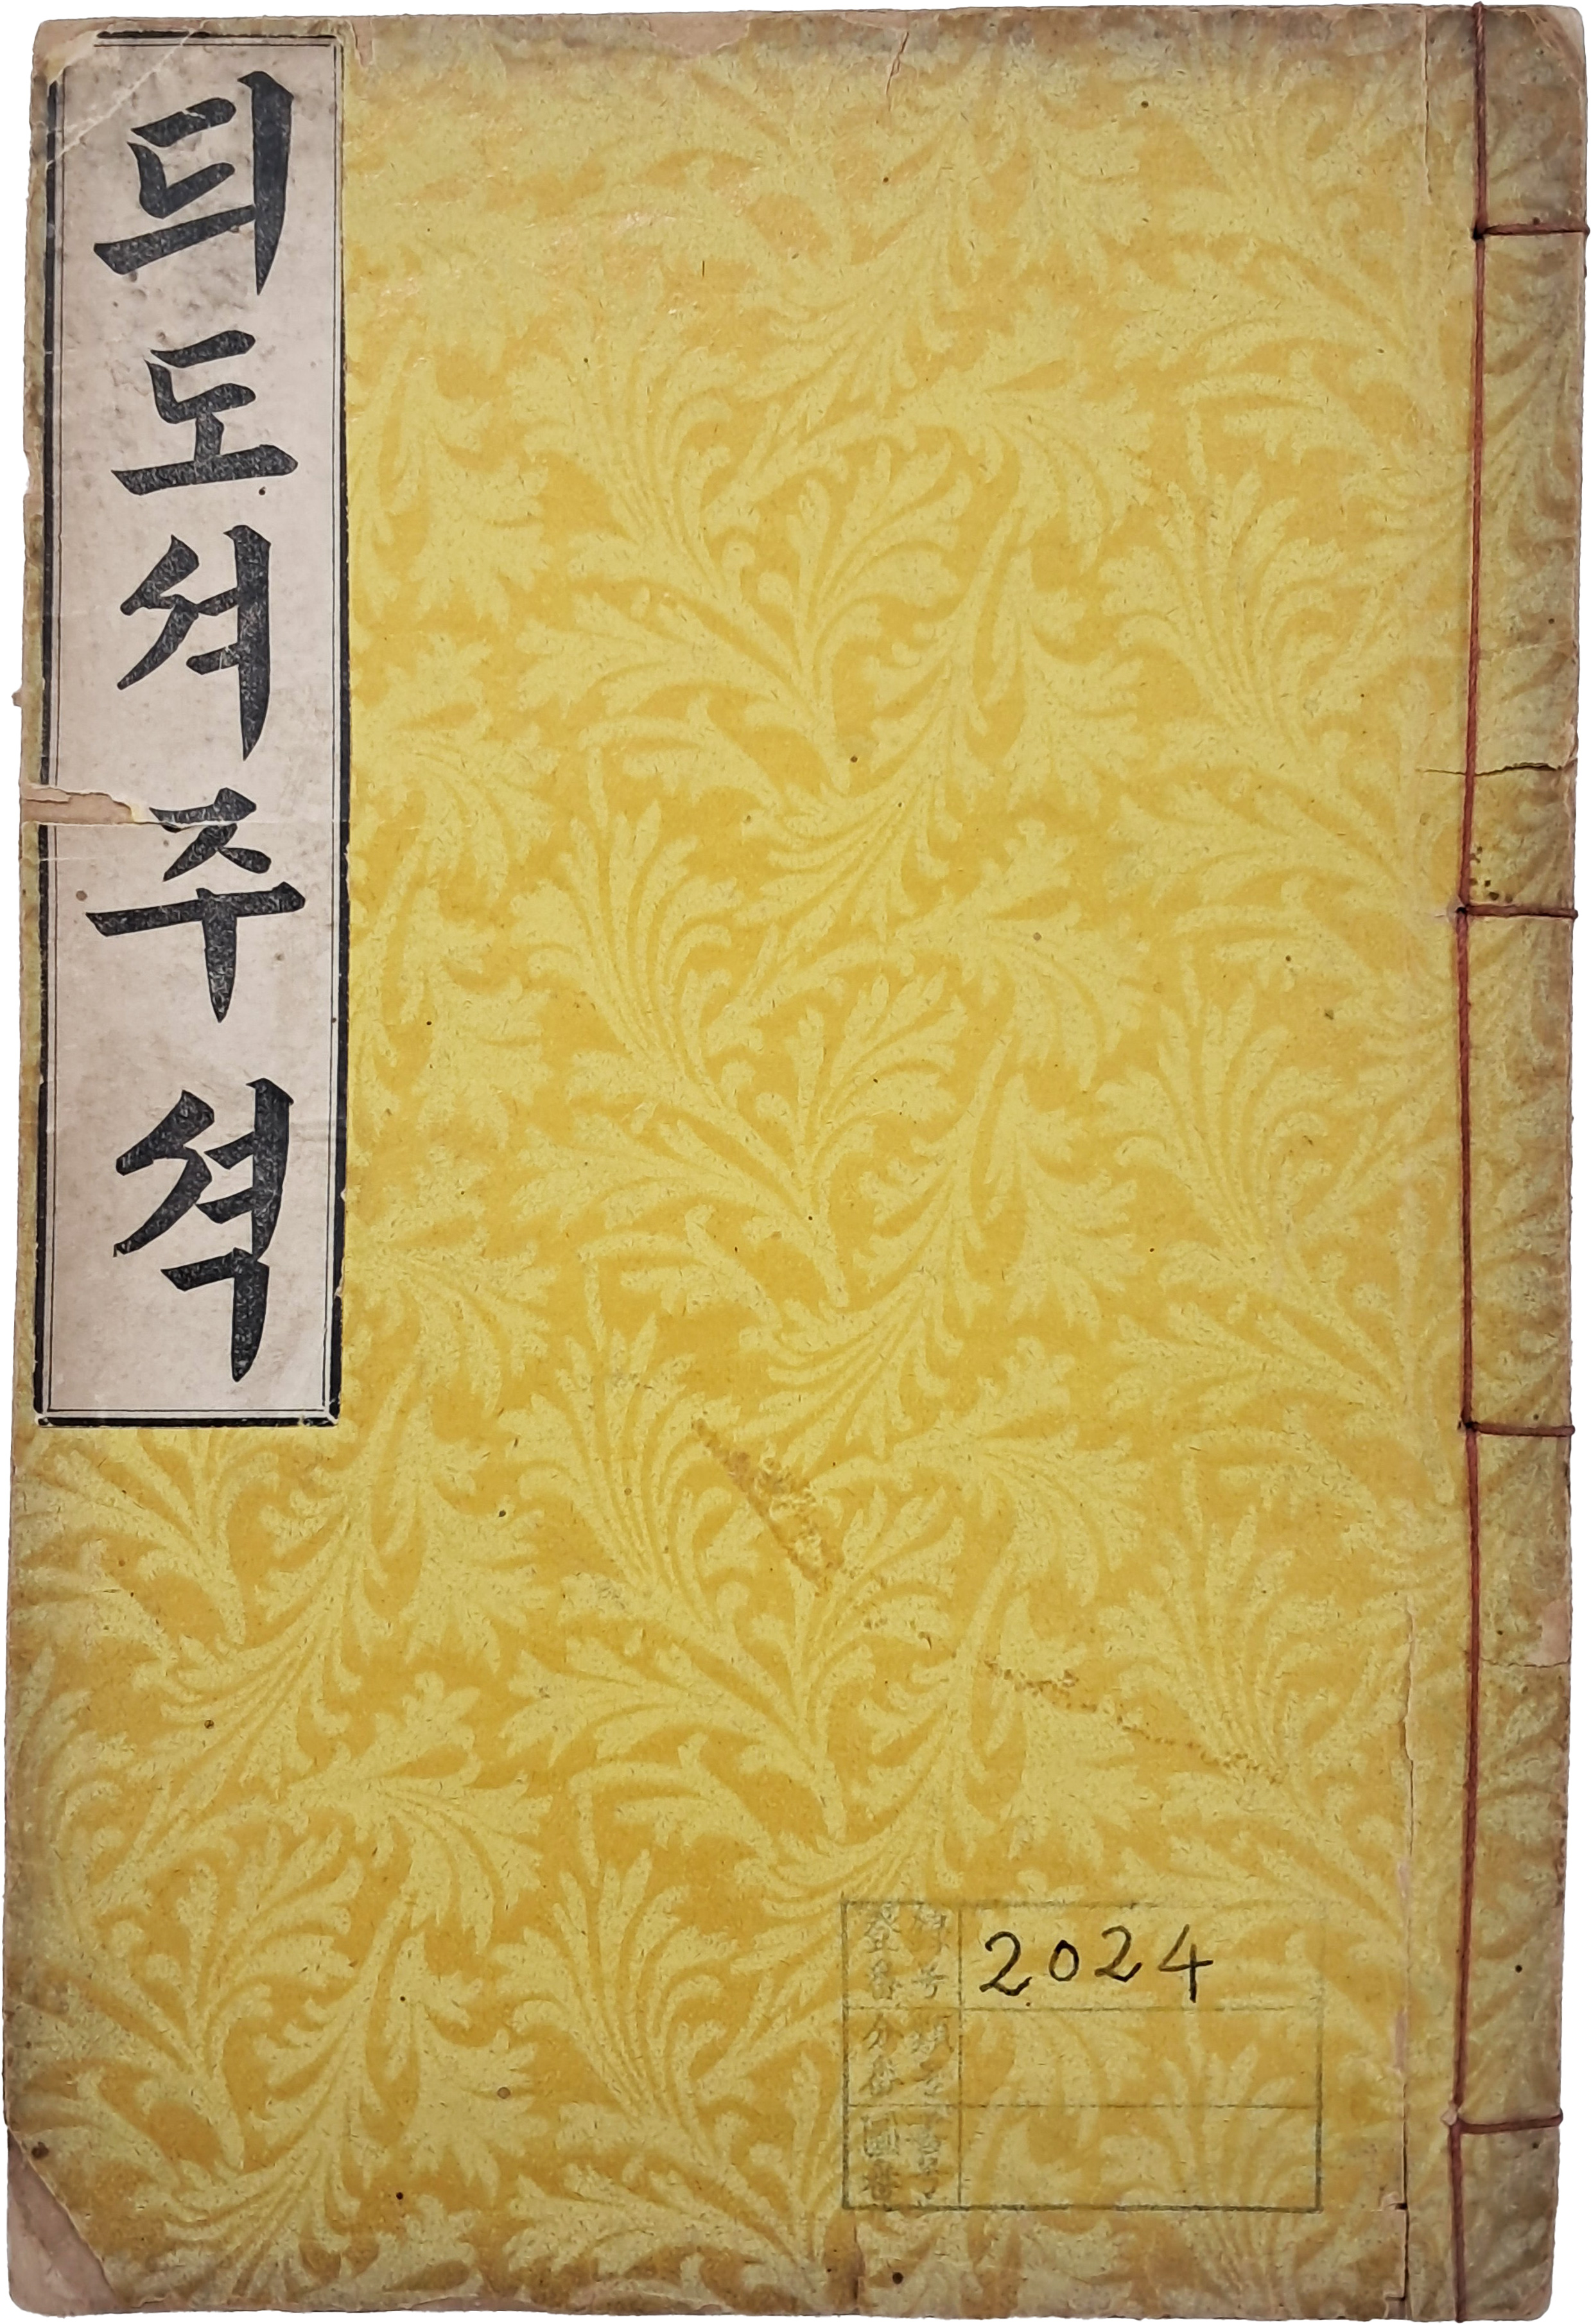 듸도셔주셕
2024